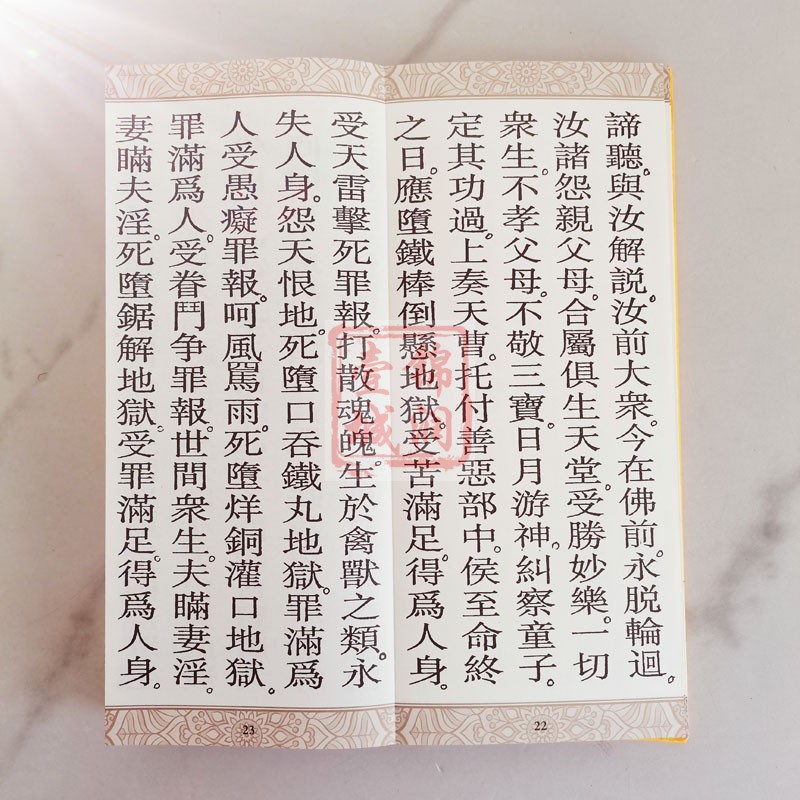 諦聽。與汝解説。汝前大衆。今在佛前。永脱輪迴。
汝諸怨親父母。合屬俱生天堂。受勝妙樂。一切
衆生。不孝父母。不敬三寶。日月游神。糾察童子。
定其功過。上奏天曹。托付善惡部中。侯至命終
之日。應墮鐵棒倒懸地獄。受苦滿足。得爲人身。
22
受天雷擊死罪報。打散魂魄。生於禽獸之類。永
失人身。怨天恨地。死墮口吞鐵丸地獄。罪滿爲
人受愚癡罪報。呵風罵雨。死墮烊銅灌口地獄。
罪滿爲人。受眷鬥争罪報。世間衆生。夫瞞妻淫。
妻瞞夫淫。死墮鋸解地獄。受罪滿足。得爲人身。
23